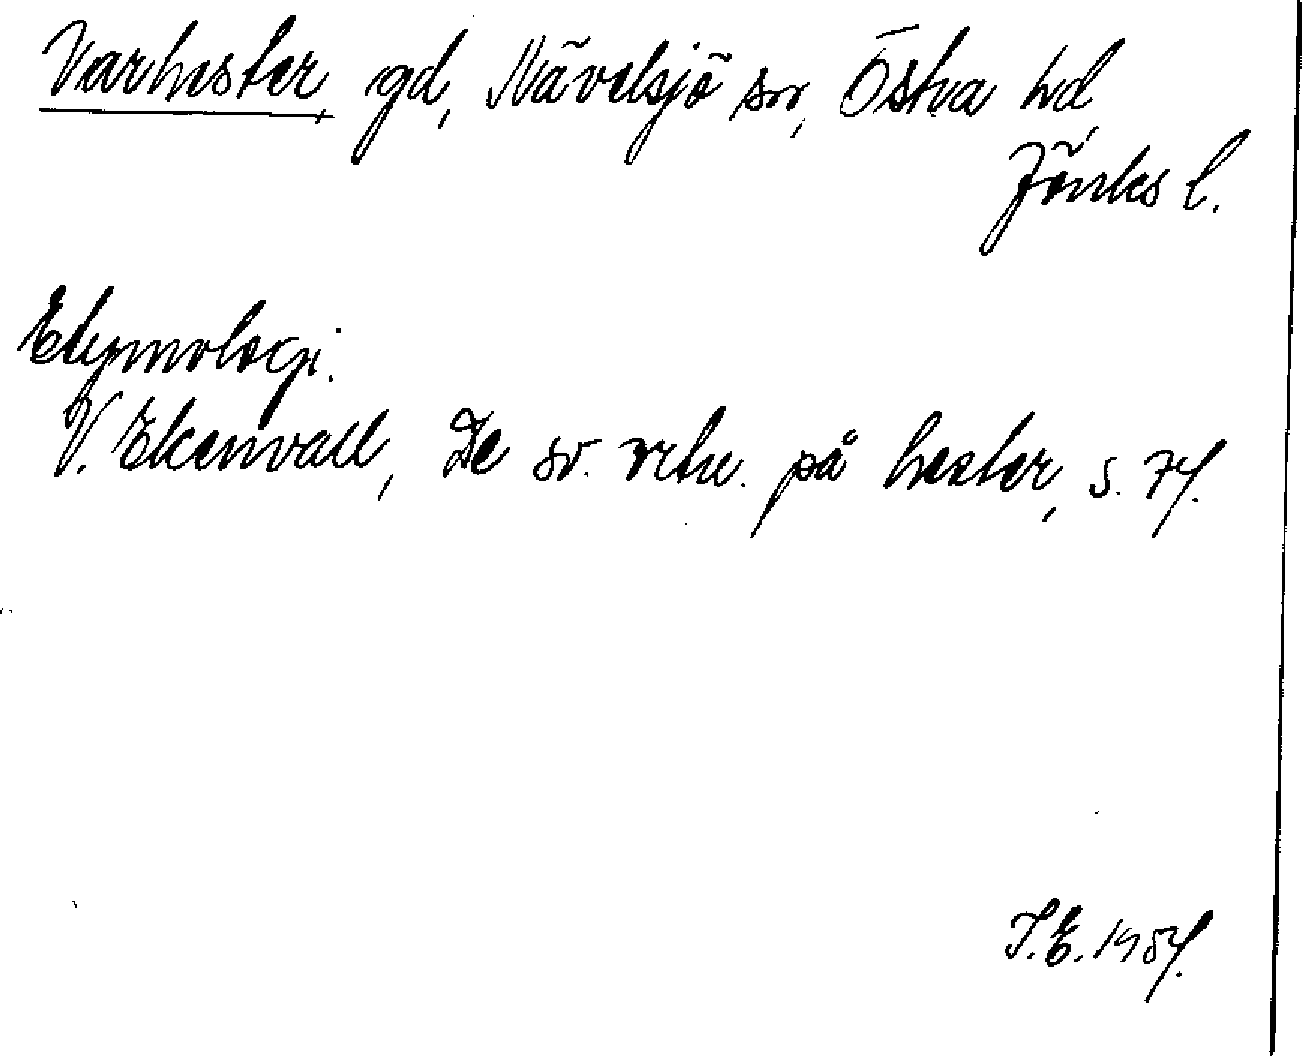 Varhester, gd, Nävelsjö sn, Östra hd,
Jönks l.
Etymologi.
V. Ekenvall, De sv. ortn. på hester, s. 74.
I.E. 1954.